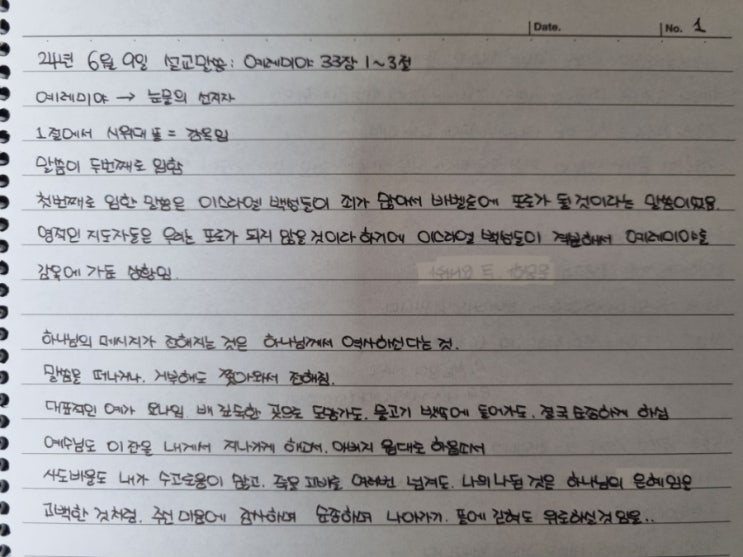 Date.
No. 1
24년 6월 9일 설교말씀: 예레미야 33장 1~3절
예레미야 → 눈물의 선지자
1절에서 시위대 뜰 = 감옥임
말씀이 두번째로 임함
첫번째로 임한 말씀은 이스라엘 백성들이 죄가 많아서 바벨론에 포로가 될 것이라는 말씀이었음.
영적인 지도자들은 우리는 포로가 되지 않을 것이라 하기에 이스라엘 백성들이 격분해서 예레미야를
감옥에 가둔 상황임.
하나님의 메시지가 전해지는 것은 하나님께서 역사하신다는 것.
말씀을 떠나거나, 거부해도 쫓아와서 전해짐.
대표적인 예가 요나임. 배 깊숙한 곳으로 도망가도, 물고기 뱃속에 들어가도, 결국 순종하게 하심
예수님도 이 잔을 내게서 지나가게 하고서, 아버지 뜻대로 하옵소서
사도바울도 내가 수고로움이 많고, 죽을 고비를 여러번 넘겨도, 나의 나된 것은 하나님의 은혜임을
고백한 것처럼, 주신 마음에 감사하며 순종하며 나아가기. 뜰에 갇혀도 위로하실 것임을..